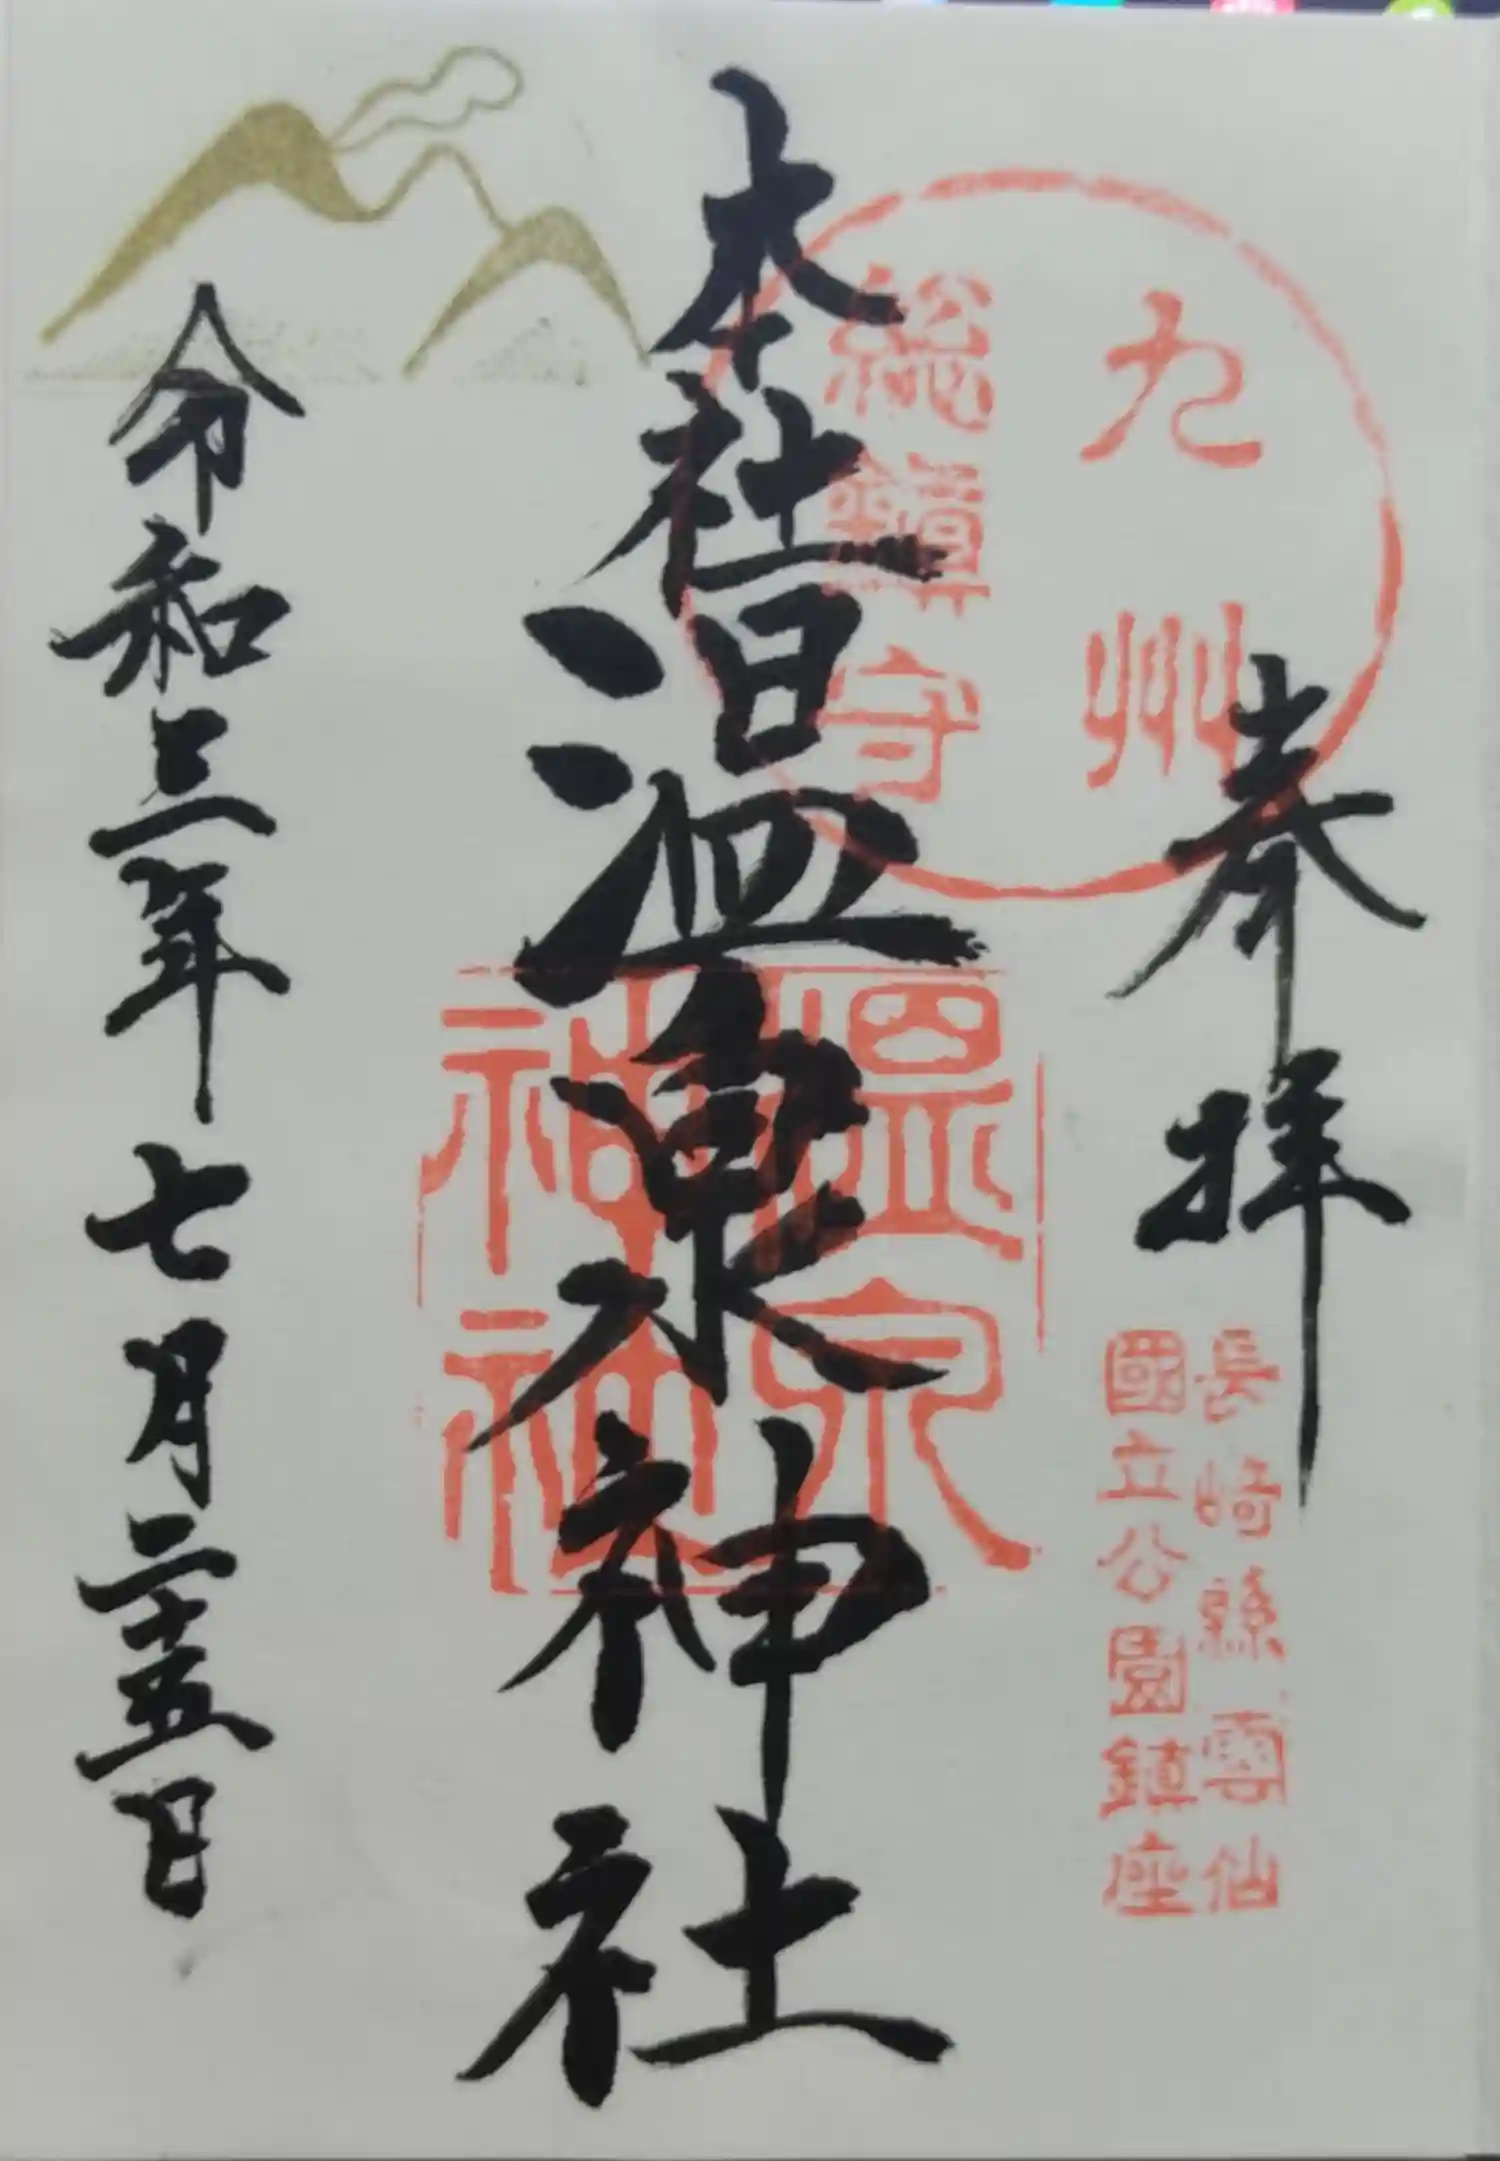 奉拝
九州
総鎮守
長崎縣雲仙
國立公園鎮座
本社温泉神社
温泉
神社
令和三年七月二十五日